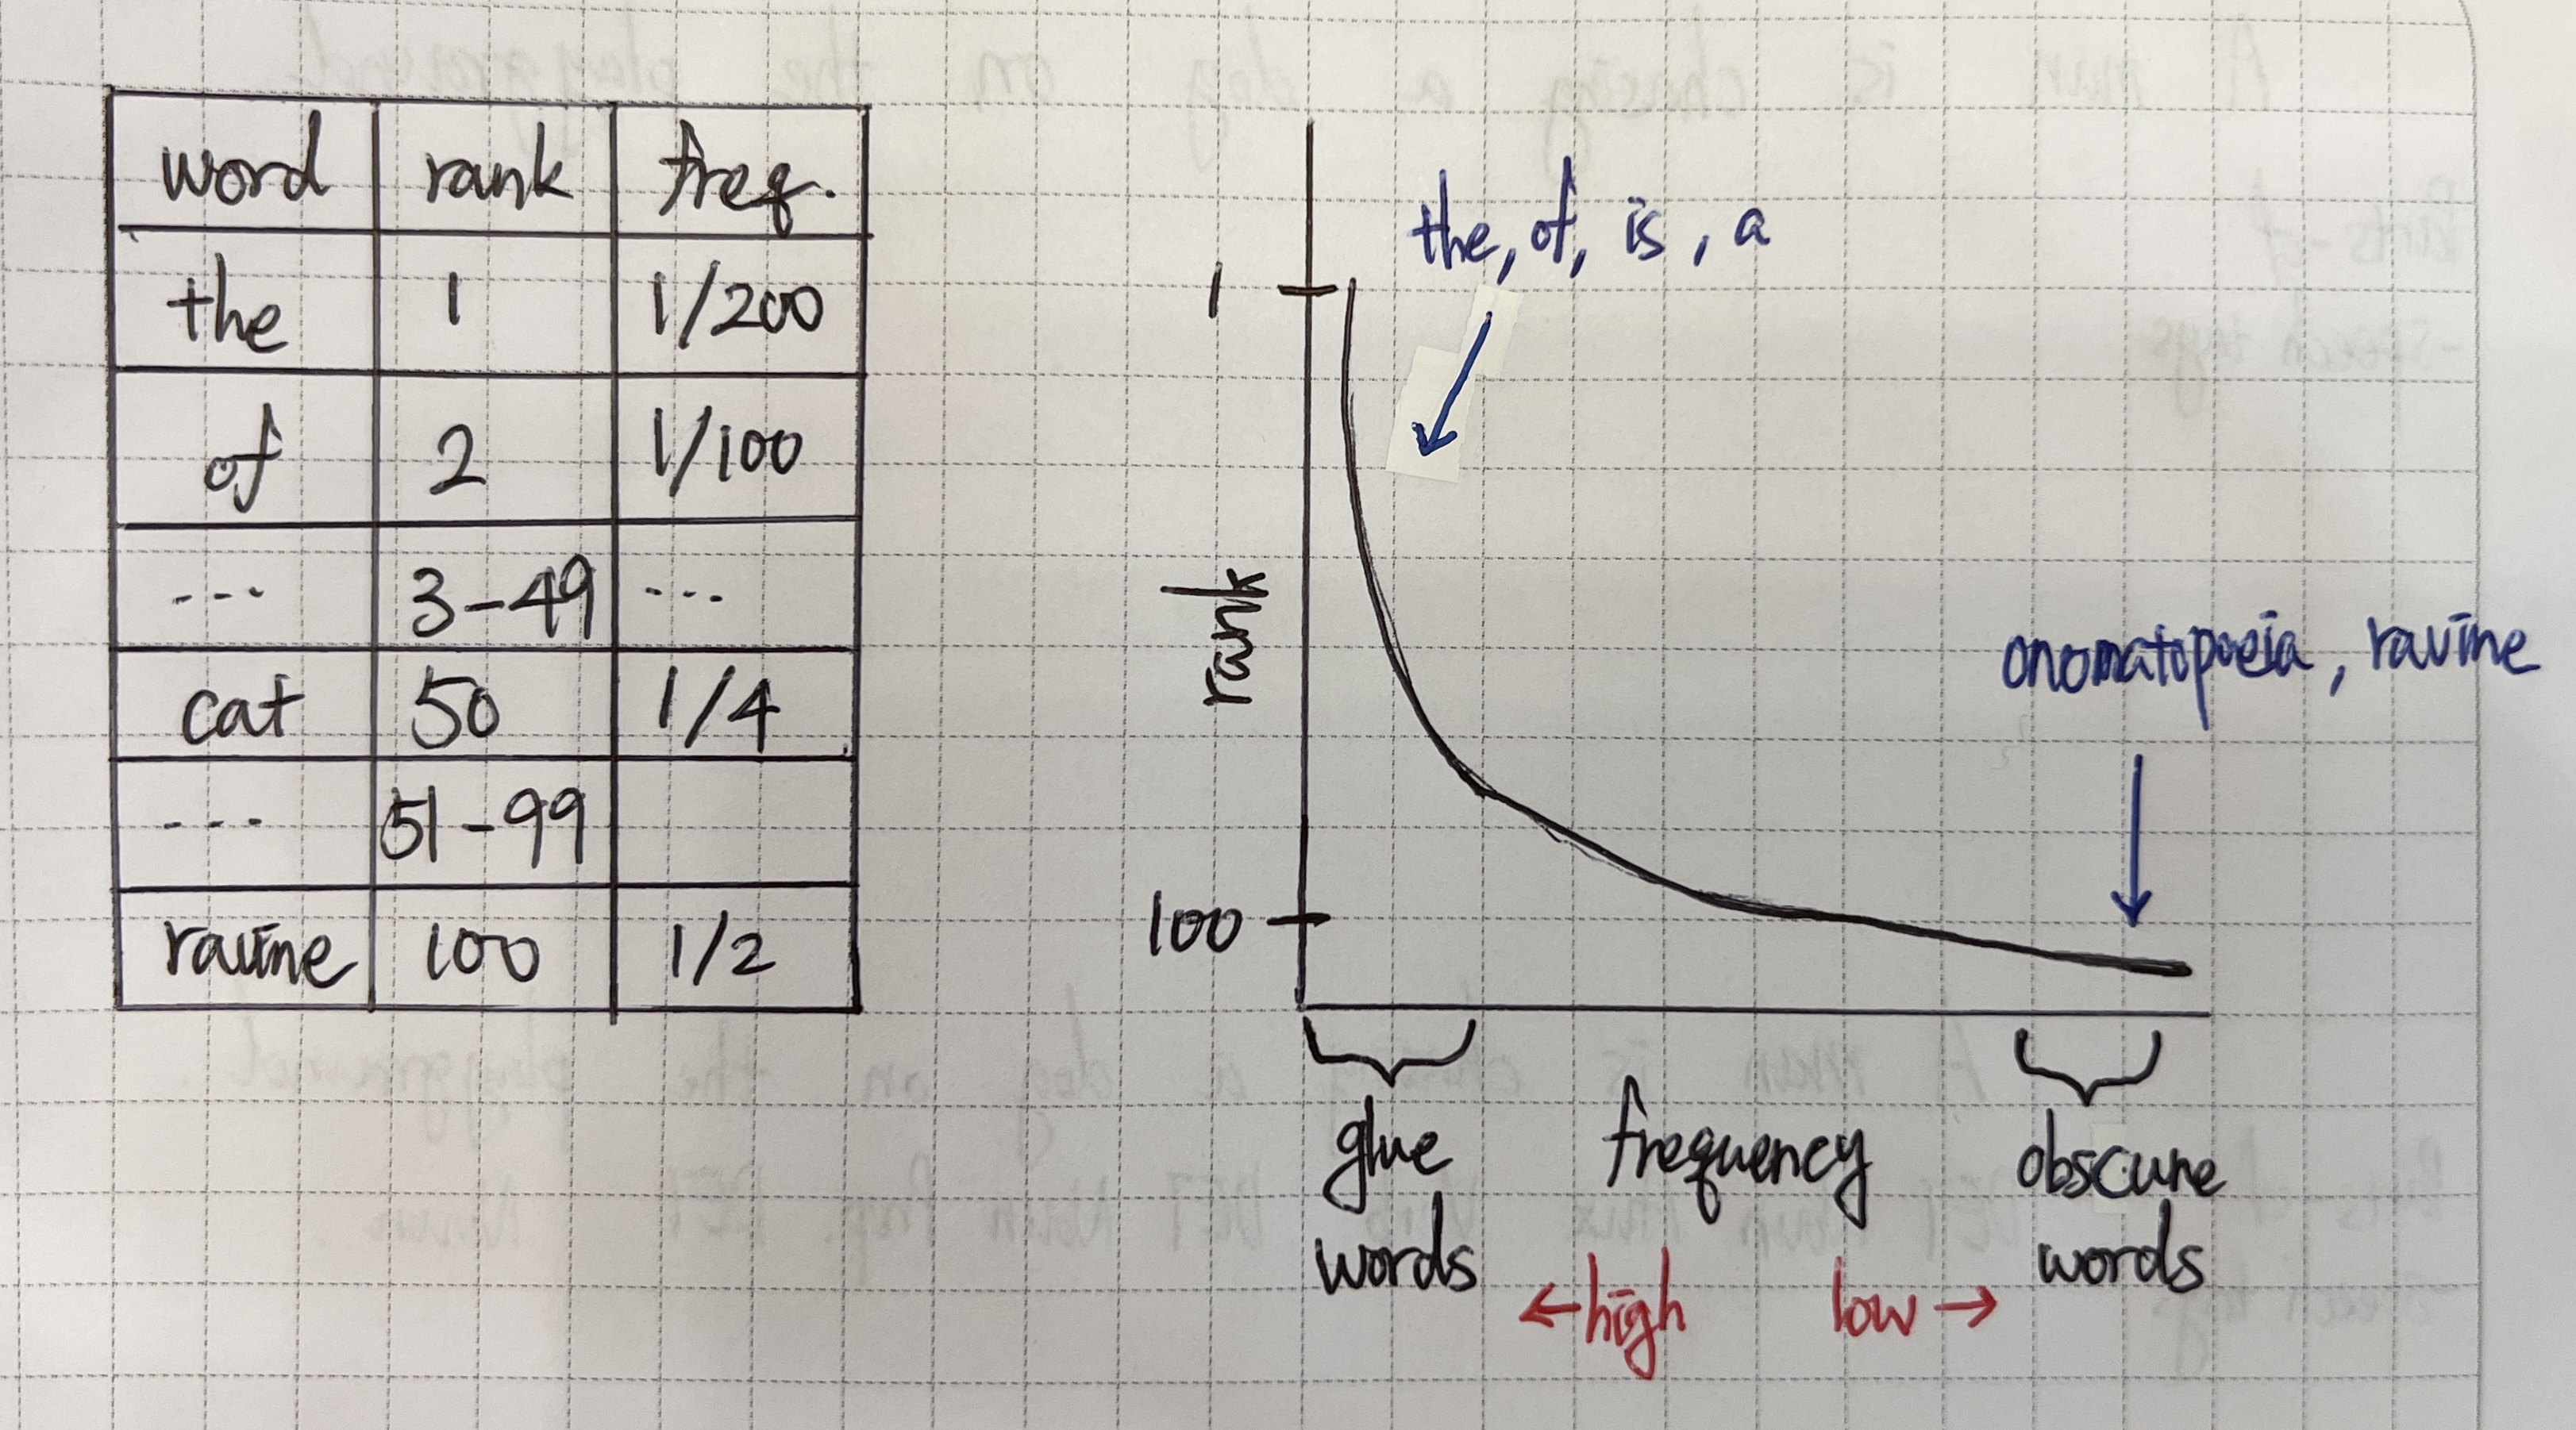 word rank freq.
the 1 1/200
of 2 1/100
--- 3-49 ---
cat 50 1/4
--- 51-99
ravine 100 1/2
the, of, is, a
1
rank
onomatopoeia, ravine
100
glue
words
frequency
obscure
words
←high low→